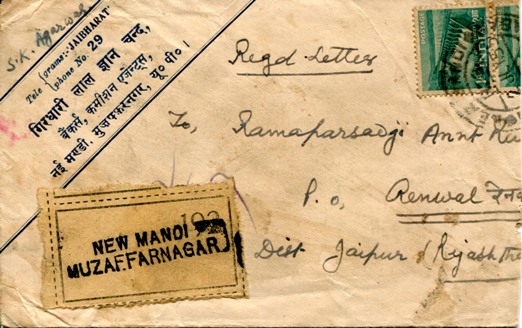 S.K. Agarwal
Tele { grams: JAIBHARAT
phone No. 29
गिरधारी लाल ज्ञान चन्द,
बैंकर्स, कमीशन एजेन्ट्स,
नई मण्डी, मुज़फ्फरनगर, यू० पी० ।
Regd Letter
POSTAGE
INDIA
To, Ramaparsadji
P.O. Renwal
Dist Jaipur (Rajasth
NEW MANDI
MUZAFFARNAGAR